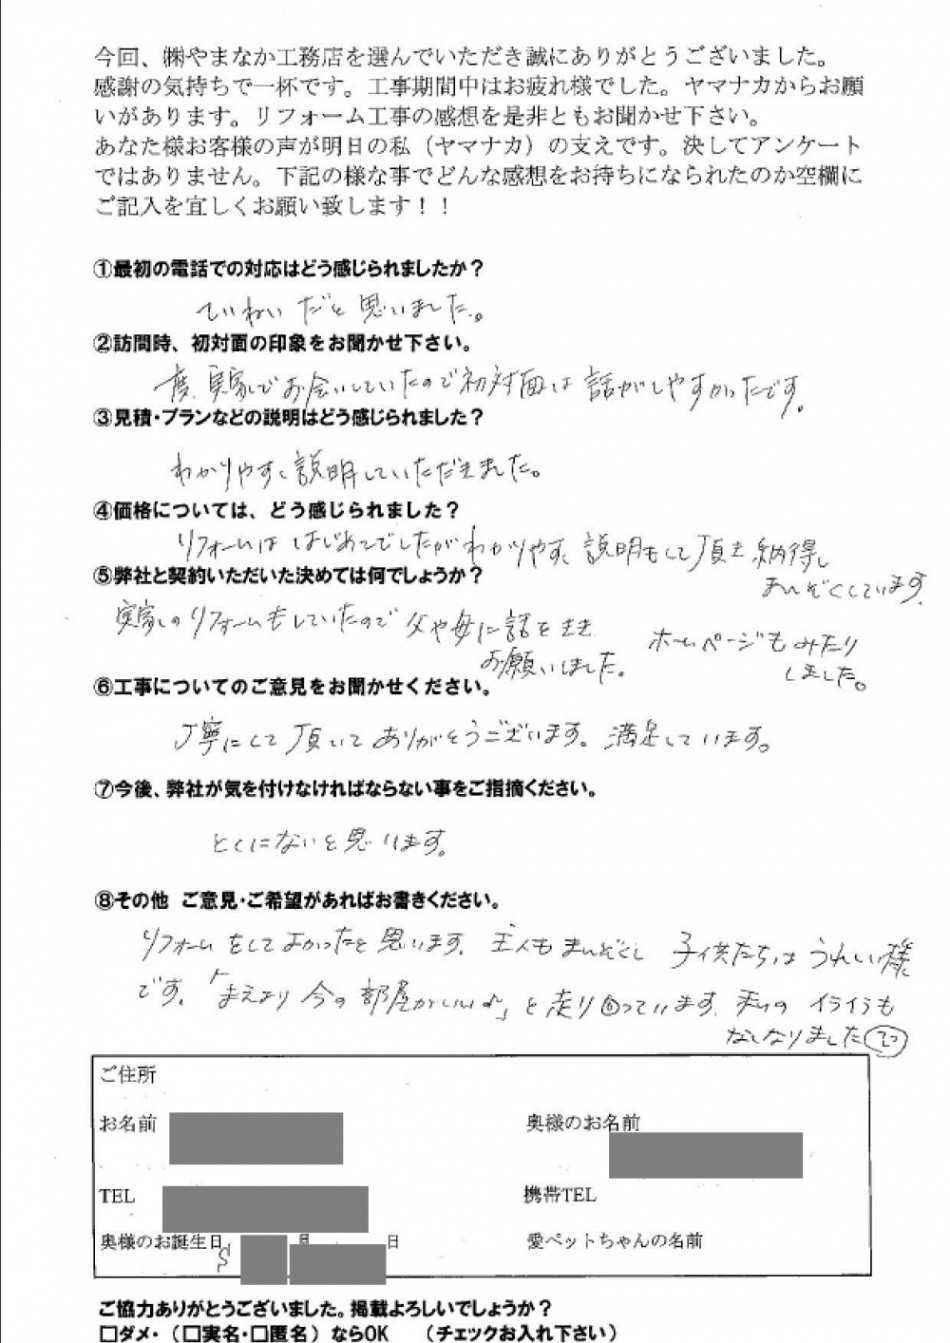 今回、㈱やまなか工務店を選んでいただき誠にありがとうございました。
感謝の気持ちで一杯です。工事期間中はお疲れ様でした。ヤマナカからお願
いがあります。リフォーム工事の感想を是非ともお聞かせ下さい。
あなた様お客様の声が明日の私（ヤマナカ）の支えです。決してアンケート
ではありません。下記の様な事でどんな感想をお持ちになられたのか空欄に
ご記入を宜しくお願い致します！！
①最初の電話での対応はどう感じられましたか？
ていねいだと思いました。
②訪問時、初対面の印象をお聞かせ下さい。
度、実家でお会いしていたので初対面は話がしやすかったです。
③見積・プランなどの説明はどう感じられました？
わかりやすく説明していただきました。
④価格については、どう感じられました？
リフォームははじめてでしたがわかりやすく説明もして頂き納得し
まんぞくしています。
⑤弊社と契約いただいた決めては何でしょうか？
実家のリフォームもしていたので父や母に話をきき
お願いしました。
ホームページもみたり
しました。
⑥工事についてのご意見をお聞かせください。
丁寧にして頂いてありがとうございます。満足しています。
⑦今後、弊社が気を付けなければならない事をご指摘ください。
とくにないと思います。
⑧その他 ご意見・ご希望があればお書きください。
リフォームをしてよかったと思います。主人もまんぞくし子供たちはうれしい様
です。「まえより今の部屋がいい♪」と走り回っています。私のイライラも
なくなりました
ご住所
お名前
奥様のお名前
TEL
携帯TEL
奥様のお誕生日 S 月 日
愛ペットちゃんの名前
ご協力ありがとうございました。掲載よろしいでしょうか？
□ダメ・（□実名・□匿名）ならOK （チェックお入れ下さい）